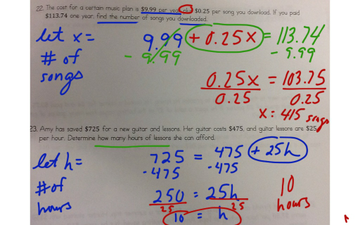 22. The cost for a certain music plan is $9.99 per year plus $0.25 per song you download. If you paid
$113.74 one year, find the number of songs you downloaded.
let x = 9.99 + 0.25x = 113.74
# of - 9.99 - 9.99
songs 0.25x = 103.75
0.25 0.25
x = 415 songs
23. Amy has saved $725 for a new guitar and lessons. Her guitar costs $475, and guitar lessons are $25
per hour. Determine how many hours of lessons she can afford.
let h = 725 = 475 + 25h
# of -475 -475
hours 250 = 25h 10
25 25 hours
10 = h